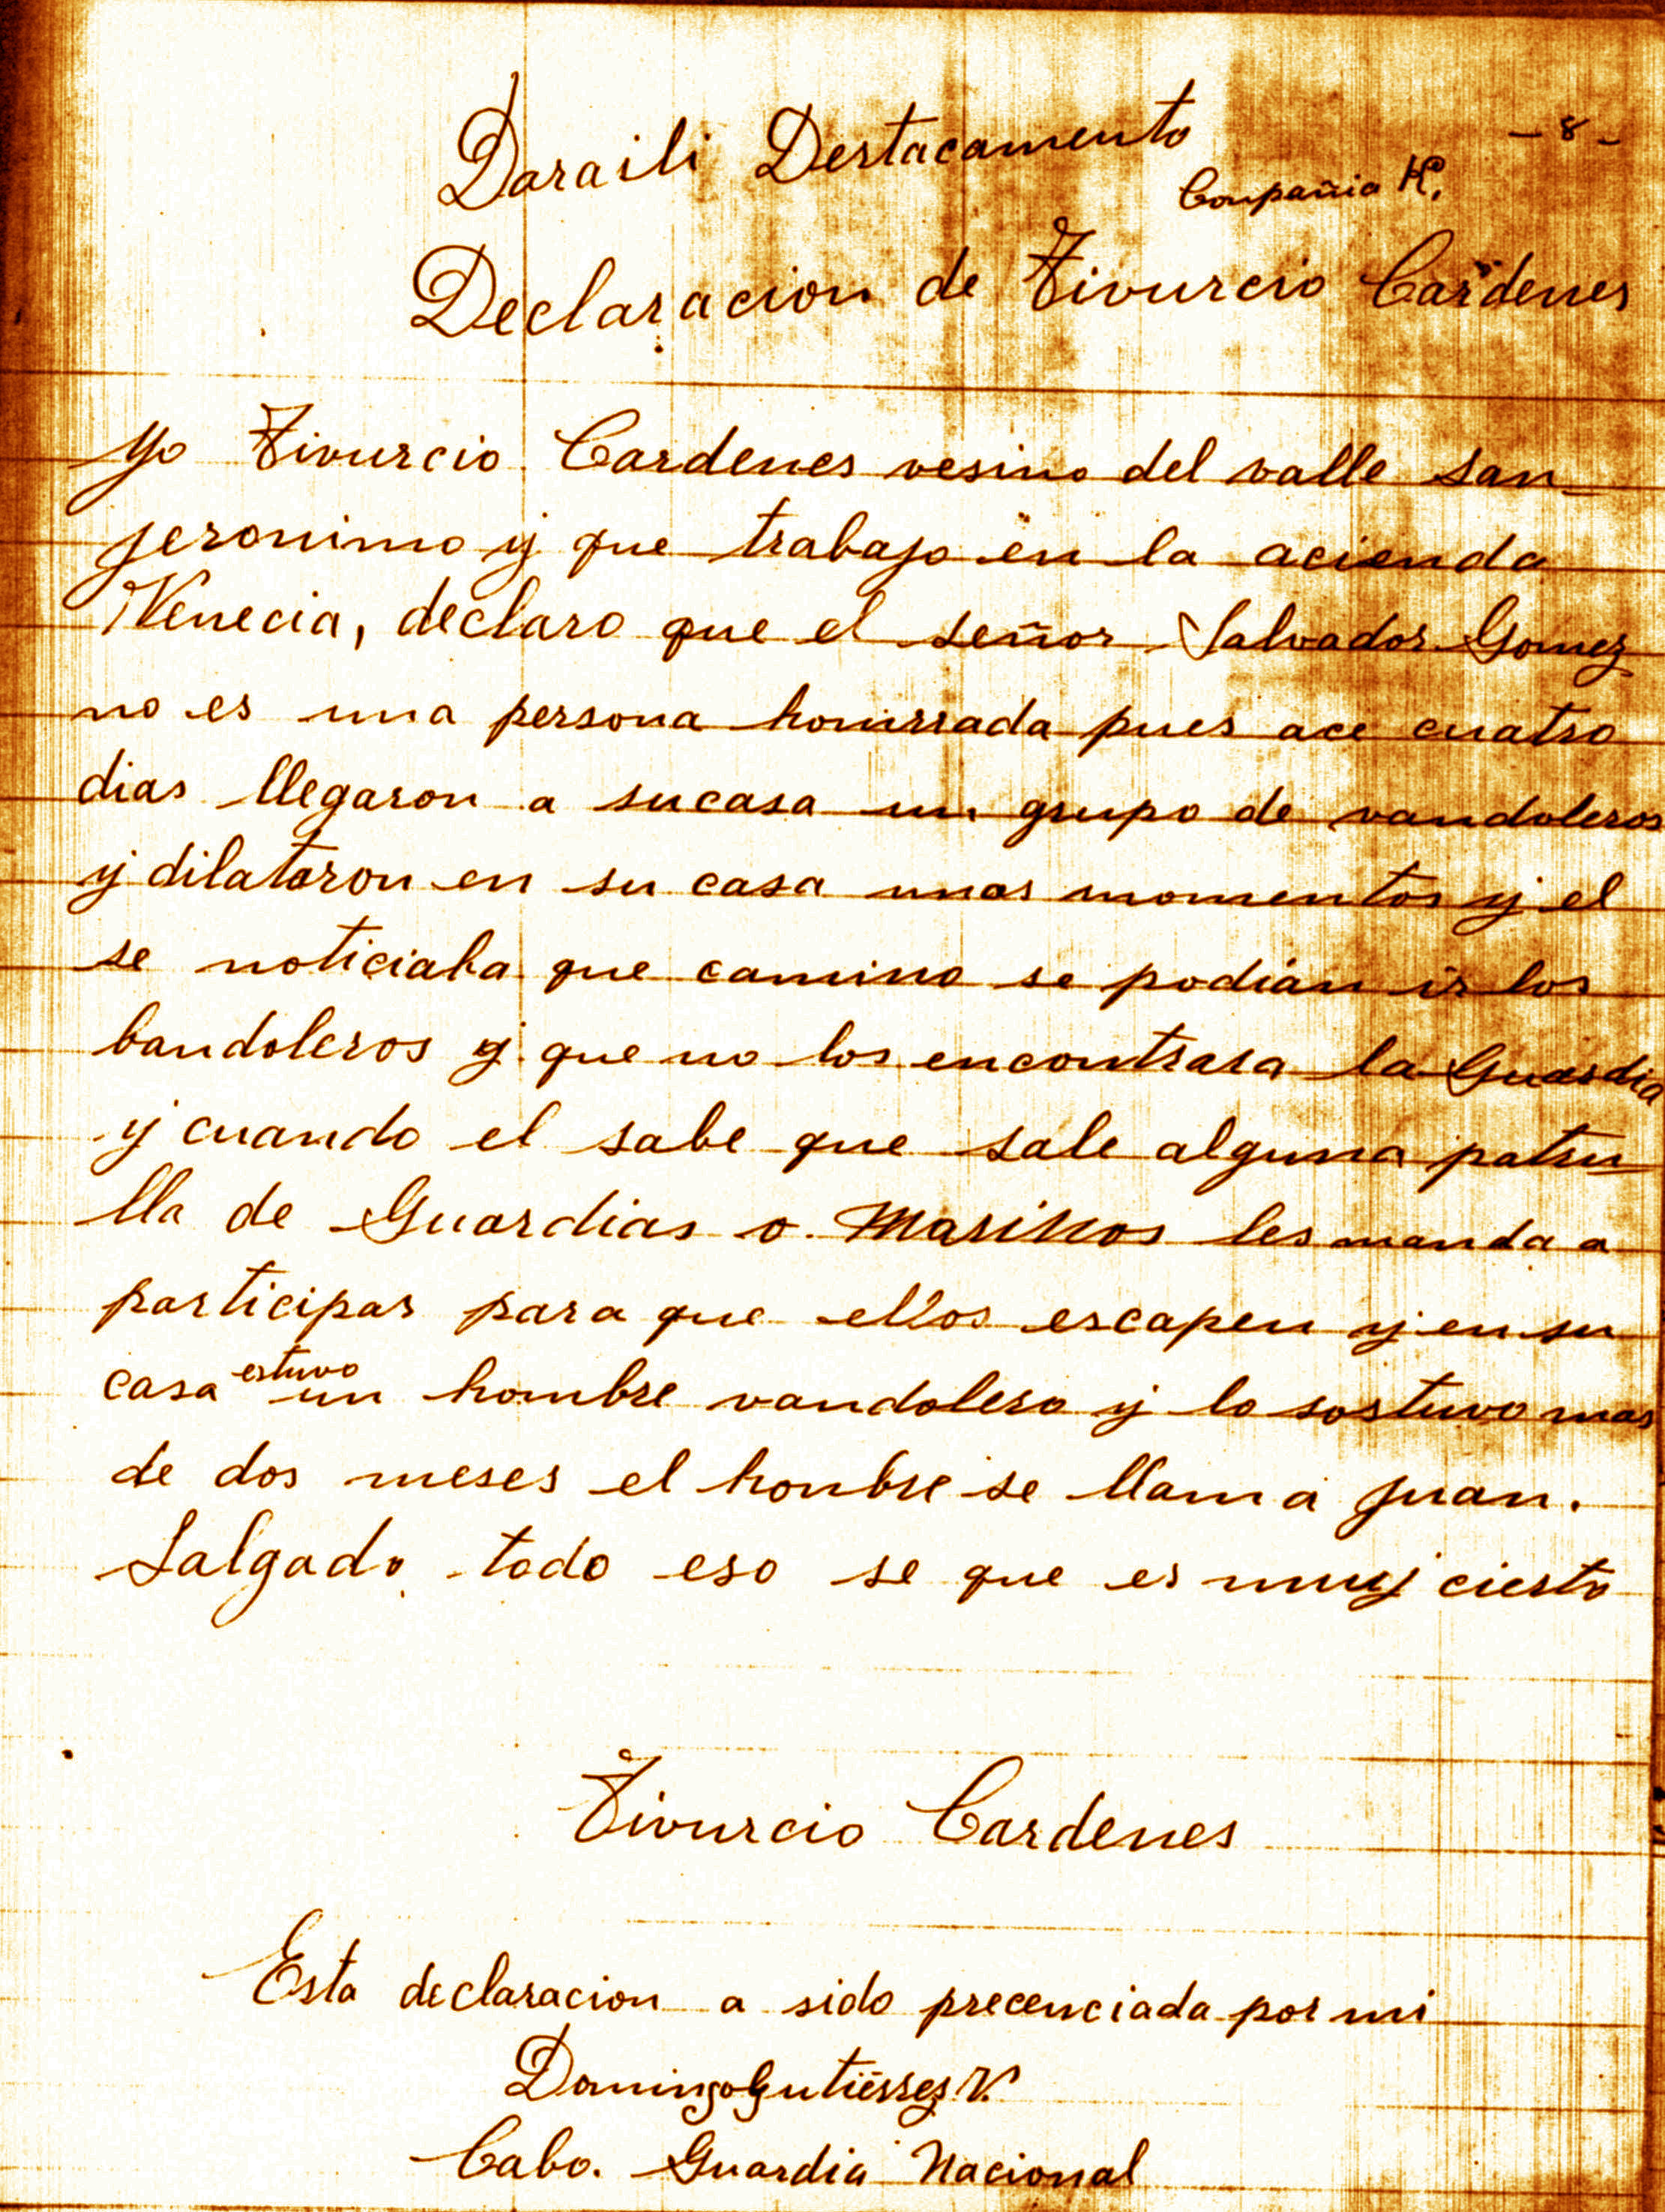 Daraili Destacamento
- 8 -
Conpañia H.
Declaracion de Tivurcio Cardenes
Yo Tivurcio Cardenes vesino del valle san
jeronimo y que trabajo en la acienda
Venecia, declaro que el señor Salvador Gomez
no es una persona honrrada pues ace cuatro
dias llegaron a sucasa un grupo de vandoleros
y dilataron en su casa unos momentos y el
se noticiaba que camino se podian ir los
bandoleros y que no los encontrara la Guardia
y cuando el sabe que sale alguna patru
lla de Guardias o Marinos les manda a
participar para que ellos escapen y en su
casa estuvo un hombre vandolero y lo sostuvo mas
de dos meses el honbre se llama Juan.
Salgado todo eso se que es muy cierto
Tivurcio Cardenes
Esta declaracion a sido precenciada por mi
Domingo Gutiérrez V.
Cabo. Guardia Nacional